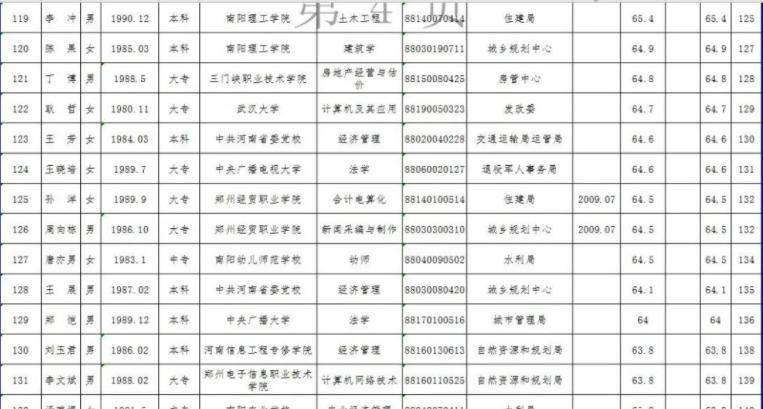 第 4 页
119 李 冲 男 1990.12 本科 南阳理工学院 土木工程 88140070414 住建局 65.4 65.4 125
120 陈 果 女 1985.03 本科 南阳理工学院 建筑学 88030190711 城乡规划中心 64.9 64.9 127
121 丁 博 男 1988.5 大专 三门峡职业技术学院 房地产经营与估价 88150080425 房管中心 64.8 64.8 128
122 耿 哲 女 1980.11 大专 武汉大学 计算机及其应用 88190050323 发改委 64.7 64.7 129
123 王 芳 女 1984.03 本科 中共河南省委党校 经济管理 88020040228 交通运输局运管局 64.6 64.6 130
124 王晓培 女 1989.7 大专 中央广播电视大学 法学 88060020127 退役军人事务局 64.6 64.6 131
125 孙 洋 女 1989.9 大专 郑州经贸职业学院 会计电算化 88140100514 住建局 2009.07 64.5 64.5 132
126 周向栋 男 1986.10 大专 郑州经贸职业学院 新闻采编与制作 88030300310 城乡规划中心 2009.07 64.5 64.5 132
127 唐亦男 女 1983.1 中专 南阳幼儿师范学校 幼师 88040090502 水利局 64.5 64.5 134
128 王 晨 男 1987.02 本科 中共河南省委党校 经济管理 88030080420 城乡规划中心 64.1 64.1 135
129 郑 恺 男 1989.12 本科 中央广播大学 法学 88170100516 城市管理局 64 64 136
130 刘玉君 男 1986.02 本科 河南信息工程专修学院 经济管理 88160130613 自然资源和规划局 63.8 63.8 138
131 李文斌 男 1988.02 大专 郑州电子信息职业技术学院 计算机网络技术 88160110525 自然资源和规划局 63.8 63.8 139